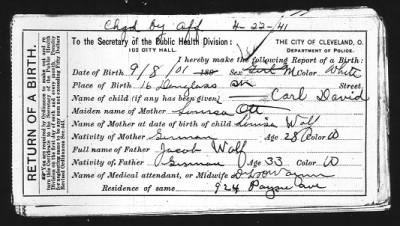 Chgd by aff 4-22-41
To the Secretary of the Public Health Division:
103 CITY HALL.
THE CITY OF CLEVELAND, O.
DEPARTMENT OF POLICE.
I hereby make the following Report of a Birth:
Date of Birth 9/8/01 Sex M Color White
Place of Birth 16 Douglas Street
Name of child (if any has been given) Carl David
Maiden name of Mother Louisa Ott
Name of Mother at date of birth of child Louisa Wolf
Nativity of Mother German Age 28 Color W
Full name of Father Jacob Wolf
Nativity of Father German Age 33 Color W
Name of Medical attendant, or Midwife
Residence of same 924 Payne ave
RETURN OF A BIRTH.